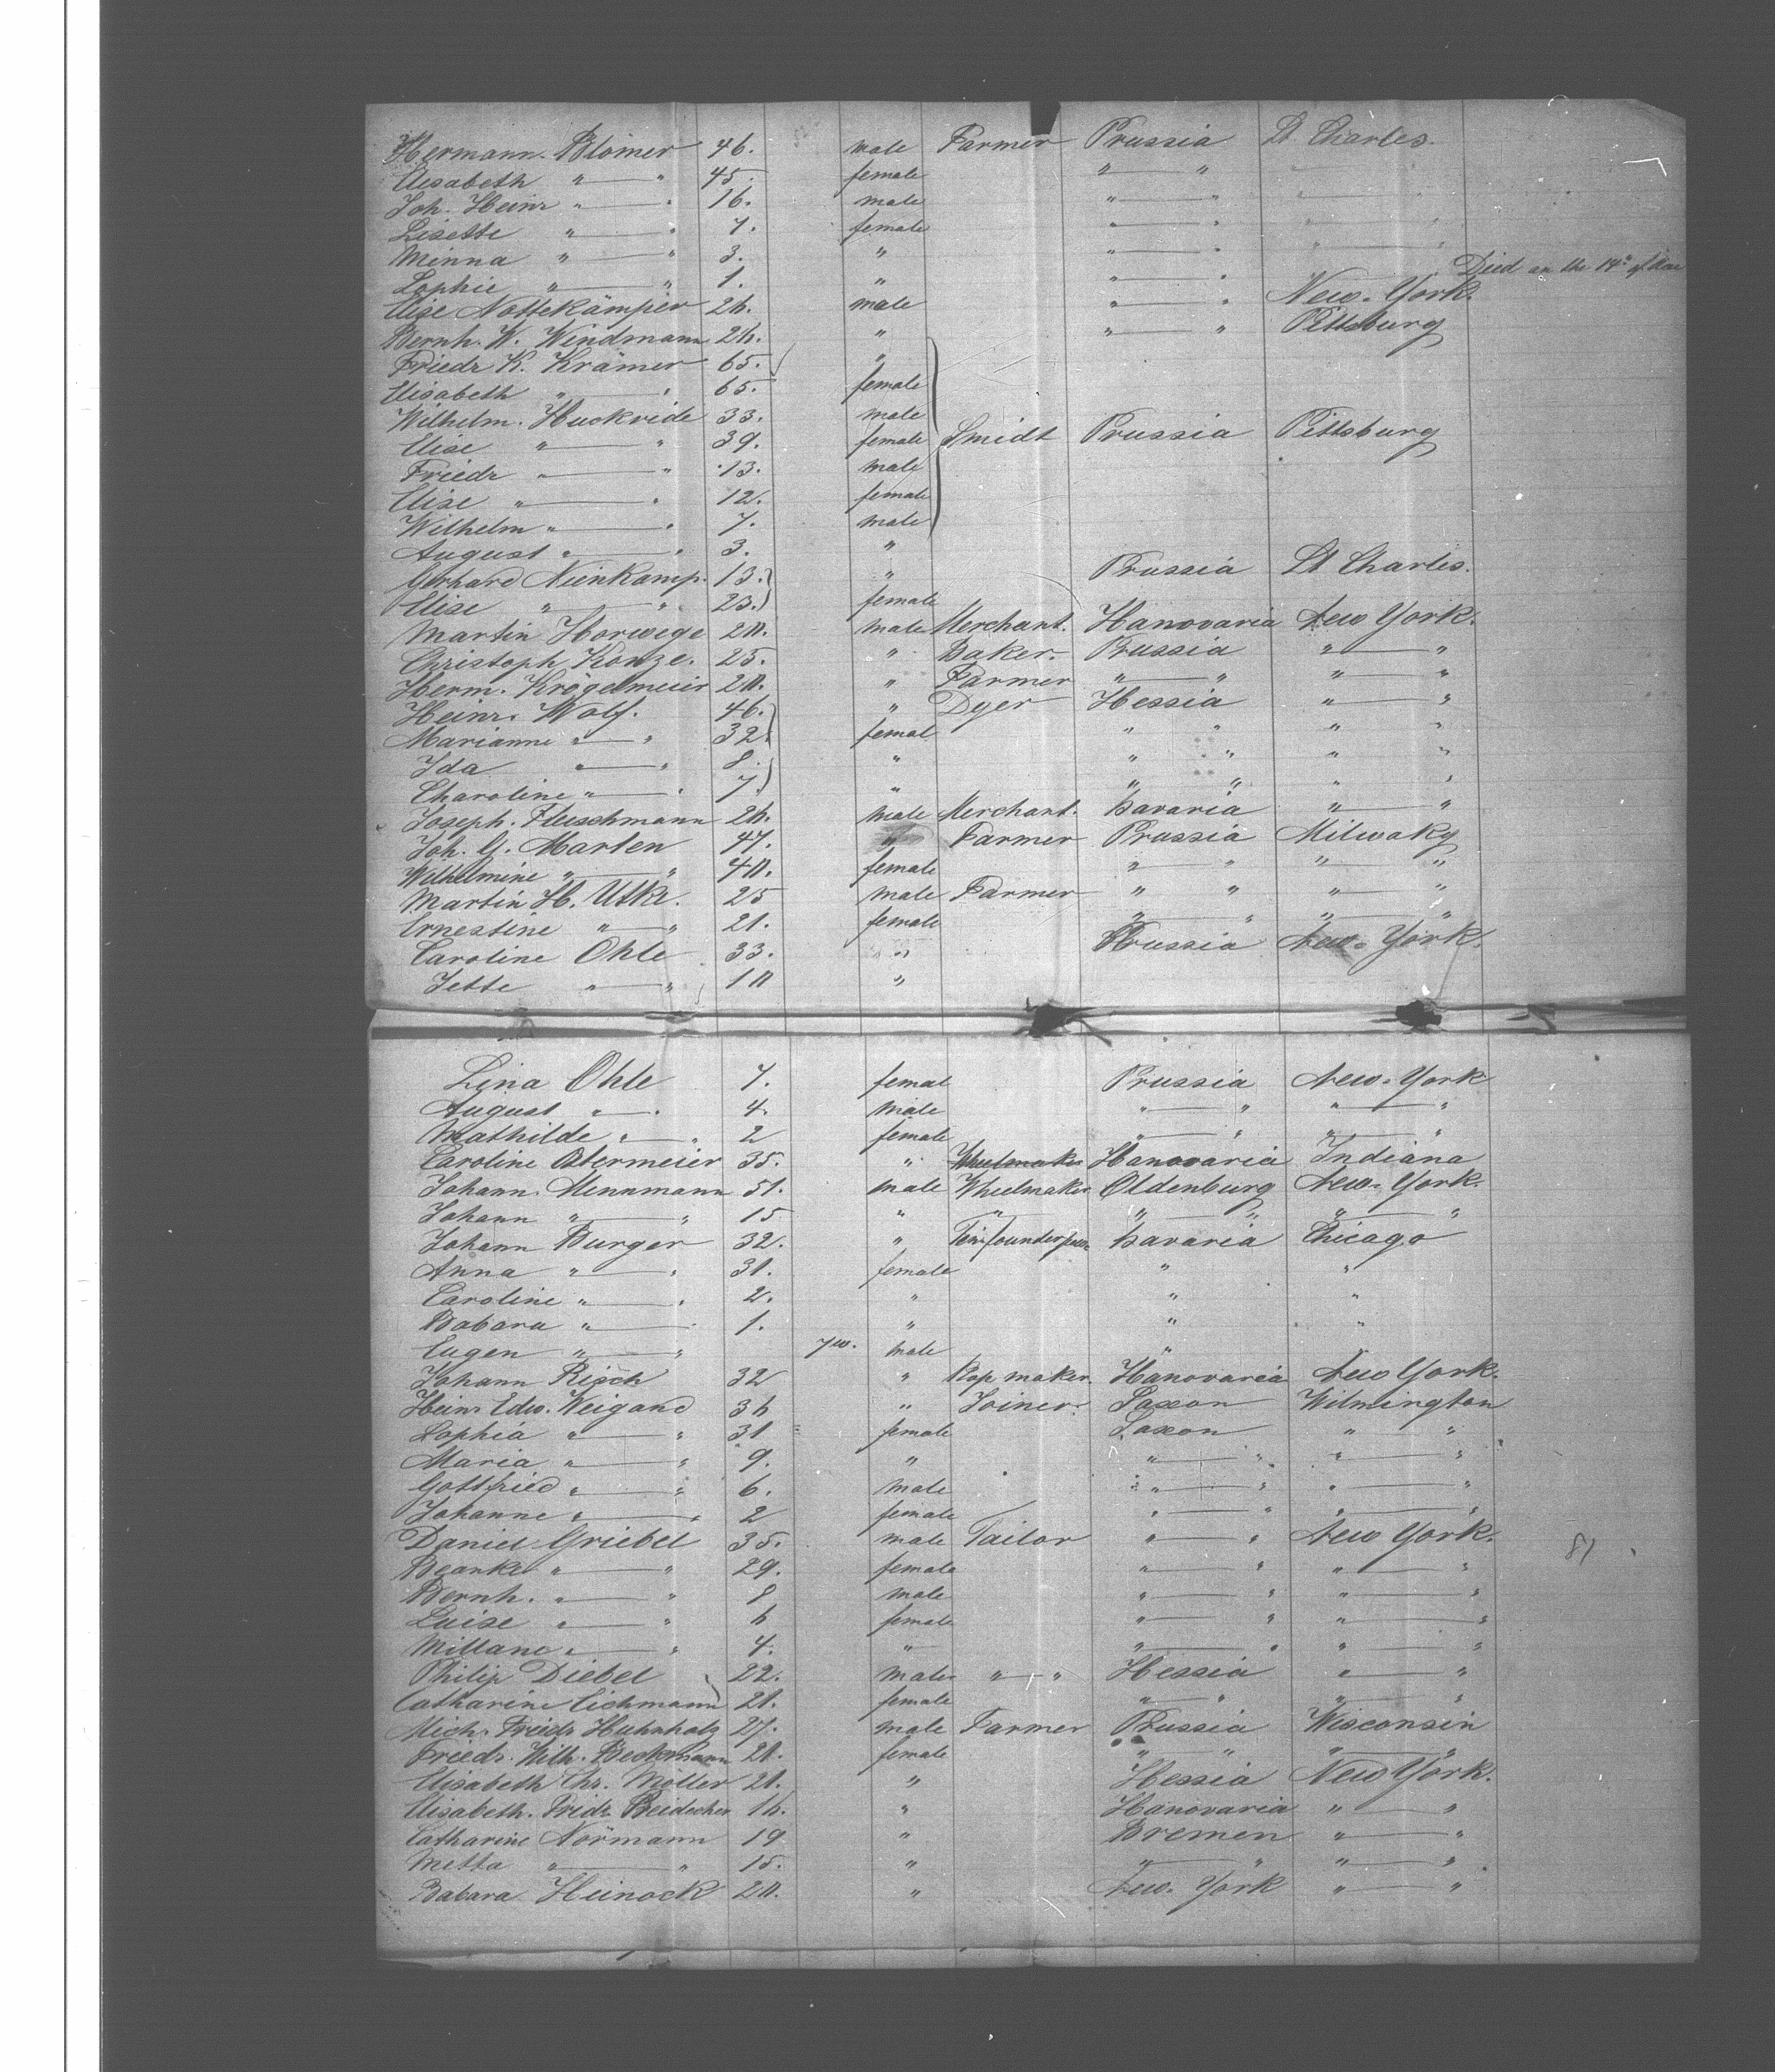 Hermann Blömer 46. male Farmer Prussia St. Charles.
Elisabeth " — " 45. female " — "
Joh. Heinr " — " 16. male " — "
Lisette " — " 7. female " — " " — "
Minna " — " 3. " " — " " — "
Sophie " — " 1. " " — " Died on the 14th of
Elise Nottekämper 26. male " — " New-York.
Bernh. W. Windmann 26. " " — " Pittsburg
Friedr K. Krämer 65. "
Elisabeth " — " 65. female
Wilhelm. Huckride 33. male
Elise " — " 39. female Smidt Prussia Pittsburg
Friedr " — " 13. male
Elise " — " 12. female
Wilhelm " — " 7. male
August " — " 3. "
Gerhard Nienkamp. 13. " Prussia St Charles.
Elise " — " 23. female
Martin Horwege 20. male Merchant. Hanovaria New York.
Christoph Konze. 25. " Baker. Prussia " — "
Herm. Krögelmeier 20. " Farmer " — " " — "
Heinr. Wolf. 46. " Dyer Hessia " — "
Marianne " — " 32. femal " " " "
Ida " — " 8. " " " " "
Charoline " — " 7. " " " " "
Joseph. Fleischmann 26. male Merchant. bavaria " — "
Joh. G. Marten 47. " Farmer Prussia Milwaky
Wilhelmine " — " 40. female " — " " "
Martin H. Utke. 25 male Farmer " " " — "
Ernestine " — " 21. female " " " — "
Caroline Ohle 33. " Prussia New-York.
Jette " — " 10 "
Lina Ohle 7. femal Prussia New-York
August " — " 4. male " — " " — "
Mathilde " — " 2 female " — " " — "
Caroline Ostermeier 35. " Wheelmaker Hanovaria Indiana
Johann Mennmann 51. male Wheelmaker Oldenburg New-York.
Johann " — " 15 " " " — " " — "
Johann Burger 32. " bavaria Chicago
Anna " — " 31. female " "
Caroline " — " 2. " " "
Babara " — " 1. " " "
Eugen " — " 7w. male "
Johann Risch 32 " Rop maker. Hanovaria New York.
Heinr Edw. Weigand 36 " Joiner. Saxon Wilmington
Sophia " — " 31 female Saxon " "
Maria " — " 9. " " — " " — "
Gottfried " — " 6. male " — " " — "
Johanne " — " 2 female " — " " — "
Daniel Griebel 35. male Tailor " — " New York.
Beanke " — " 29. female " — " " — "
Bernh. " — " 8 male " — " " — "
Luise " — " 6 female " — " " — "
Millane " — " 4. " " — " " — "
Philip Diebel 22. male " — " Hessia " — "
Catharine Eichmann 21. female " — " " — "
Mich. Friedr Huhnholz 27. male Farmer Prussia Wisconsin
Friedr. Wilh. Beckmann 21. female " — " " — "
Elisabeth Chr. Möller 21. " Hessia New York.
Elisabeth. Fridr. Beidecher 16. " Hanovaria " — "
Catharine Nörmann 19 " Bremen " — "
Metta " — " 15. " " — " " — "
Babara Heinock 20. " New-York " — "
81